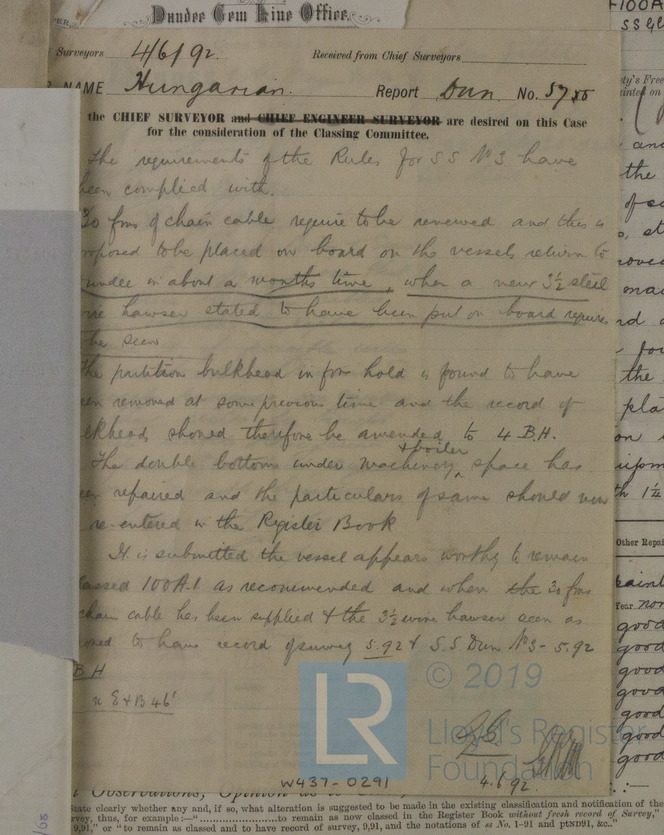 Dundee Gem Line Office.
Surveyors 4/6/92. Received from Chief Surveyors
NAME Hungarian. Report Dun. No. 5755
the CHIEF SURVEYOR and CHIEF ENGINEER SURVEYOR are desired on this Case
for the consideration of the Classing Committee.
The requirements of the Rules for SS No 3 have
been complied with.
30 fms of chain cable require to be renewed and this is
proposed to be placed on board on the vessels return to
Dundee in about a months time, when a new 3½ steel
wire hawser stated to have been put on board requires
be seen
The partition bulkhead in fore hold is found to have
een removed at some previous time and the record of
lkheads should therefore be amended to 4 B.H.
+ boiler
The double bottoms under machinery ^ space has
een repaired and the particulars of same should now
re-entered in the Register Book
It is submitted the vessel appears worthy to remain
lassed 100A1 as recommended and when the 30 fms
chain cable has been supplied & the 3½ wire hawser seen as
ioned to have record of survey 5.92 & S.S Dun No 3 - 5.92
BH
E+B 46'
4.6.92
© 2019
LR
Lloyd's Register
Foundation
W437-0291
state clearly whether any and, if so, what alteration is suggested to be made in the existing classification and notification of the
rvey, thus, for example :—"..............to remain as now classed in the Register Book without fresh record of Survey,"
9,91," or "to remain as classed and to have record of survey, 9,91, and the notations of ss No. 1-91 and ptsND91, &c.."
100A
Other Repai
good
good
good
good
good
good
good